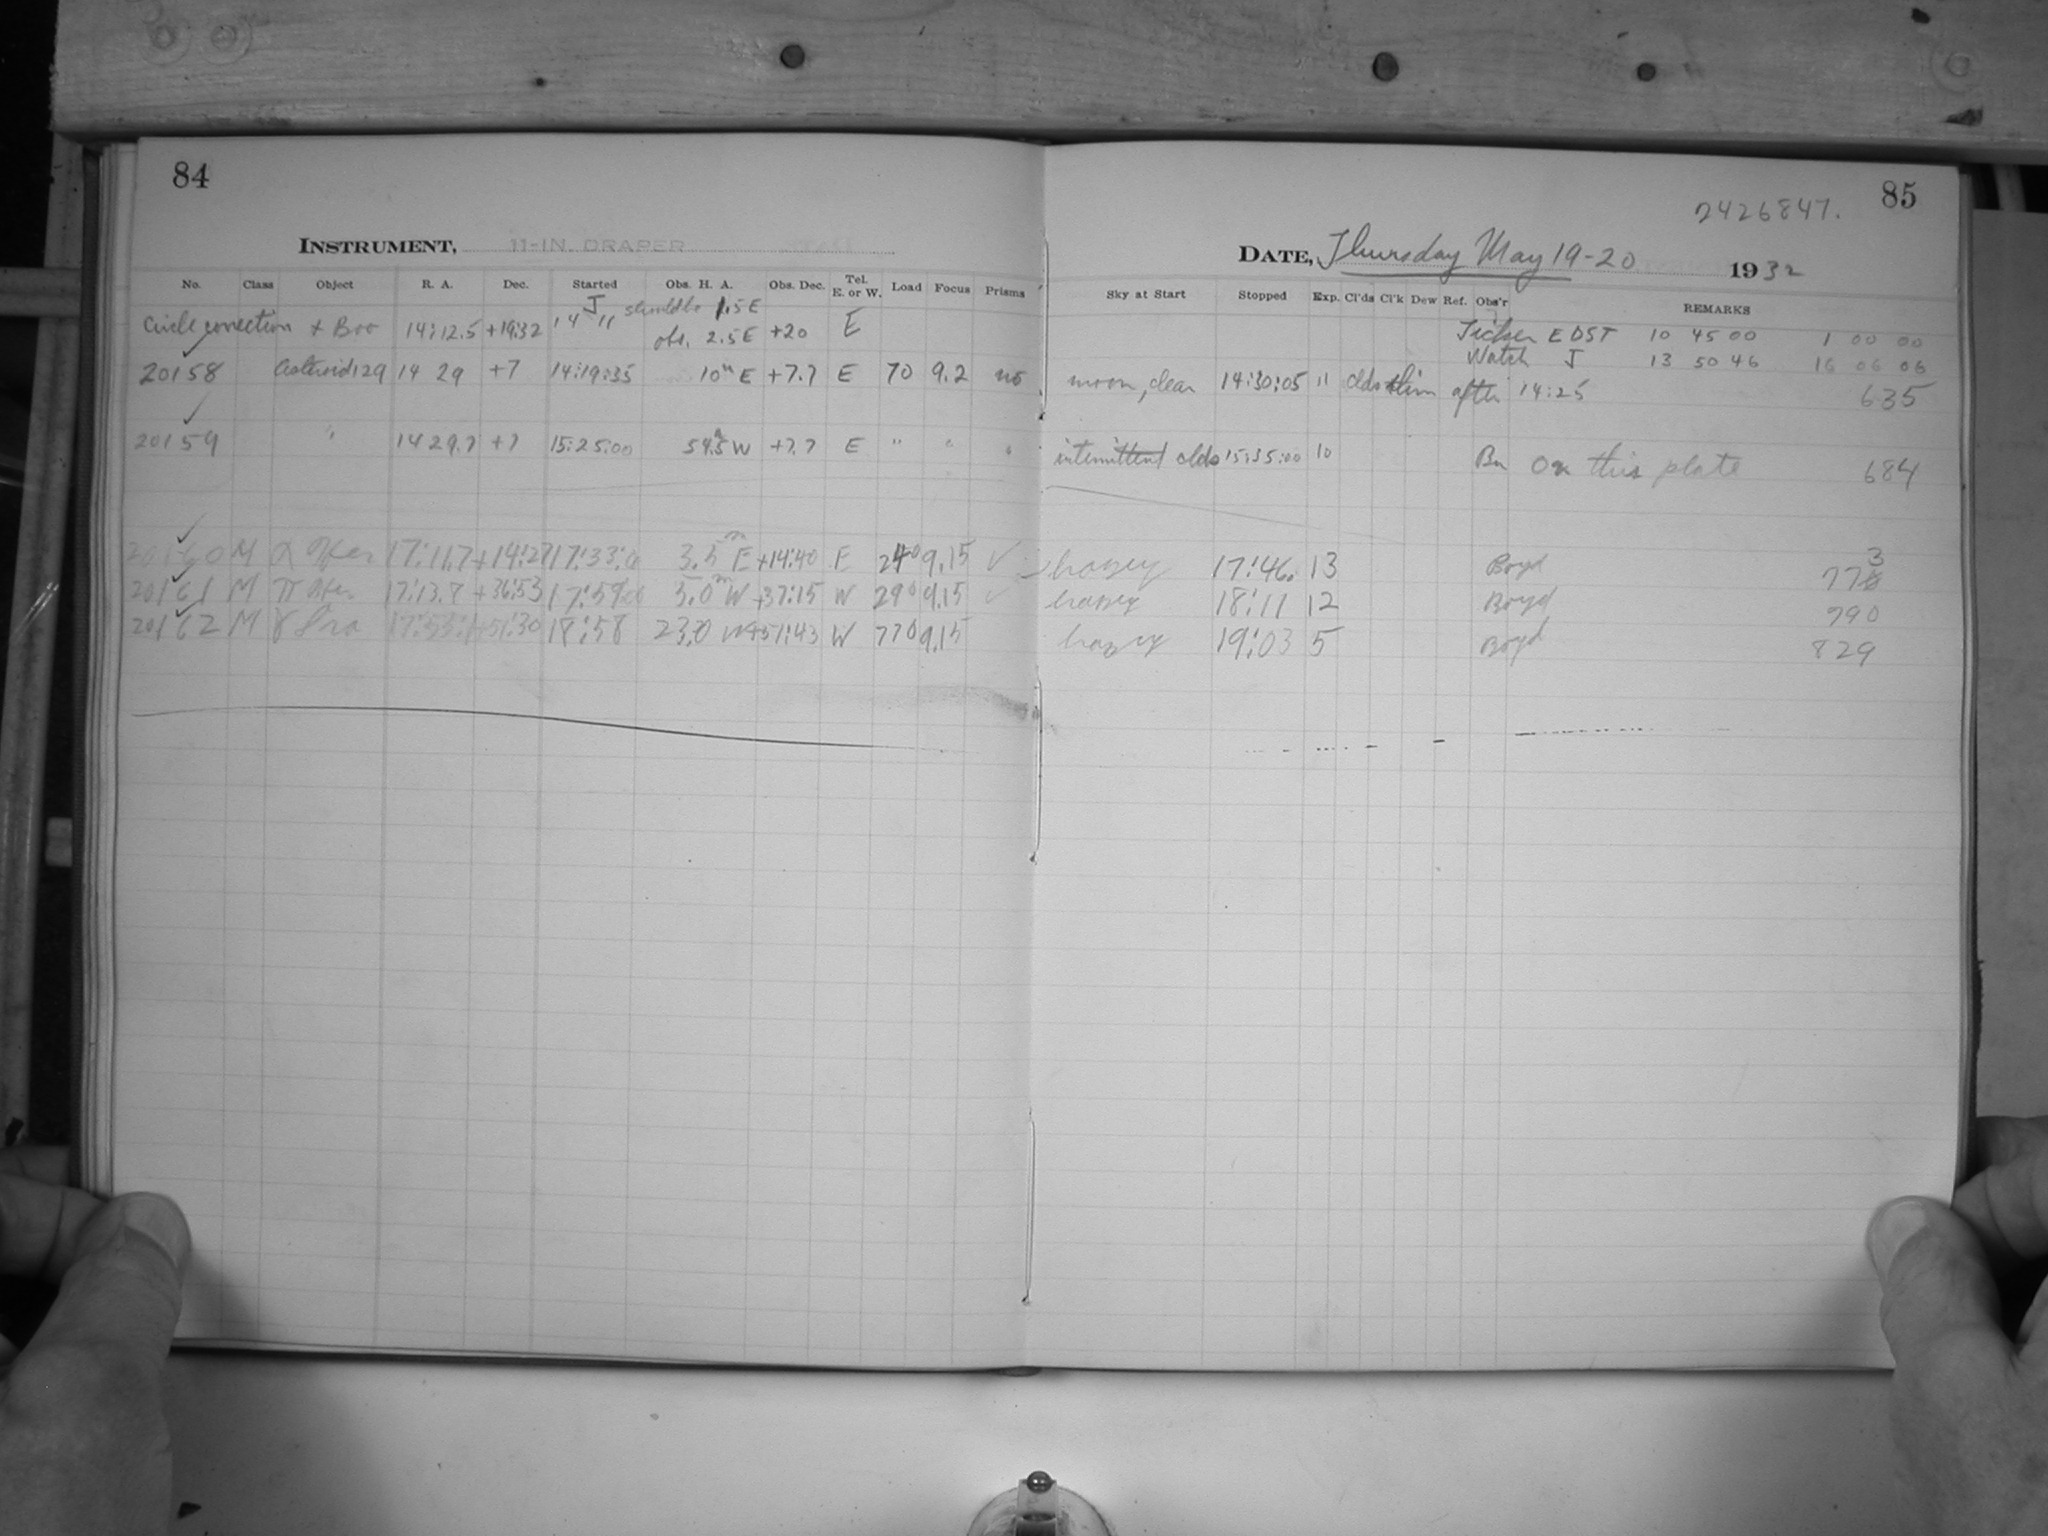 84
INSTRUMENT, 11-IN. DRAPER
No. Class Object R. A. Dec. Started Obs. H. A. Obs. Dec. Tel. E. or W. Load Focus Prisms
J should be 1.5 E
Circle correction α Boo 14:12.5 +19:32 14 11 obs. 2.5 E +20 E
20158 Asteroid 129 14 29 +7 14:19:35 10m E +7.7 E 70 9.2 no
20159 " 14 29.7 +7 15:25:00 54.5 W +7.7 E " " "
20160 M α Her 17:11.7 +14:27 17:33:0 3.5m E +14:40 E 240 9.15 ✓
20161 M π Her 17:13.7 +36:53 17:59 5.0m W +37:15 W 290 9.15 ✓
20162 M γ Dra 17:53: +51:30 18:58 23.0 W +51:43 W 770 9.15
85
2426847.
DATE, Thursday May 19-20 1932
Sky at Start Stopped Exp. Cl'ds Cl'k Dew Ref. Obs'r REMARKS
Ticker EDST 10 45 00 1 00 00
Watch J 13 50 46 16 06 06
moon, clear 14:30:05 11 clds thin after 14:25 635
intermittent clds 15:35:00 10 Bn On this plate 684
hazey 17:46. 13 Boyd 773
hazey 18:11 12 Boyd 790
hazey 19:03 5 Boyd 829